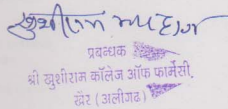 खुशीराम
प्रबन्धक
श्री खुशीराम कॉलेज ऑफ फार्मेसी,
खैर (अलीगढ़)